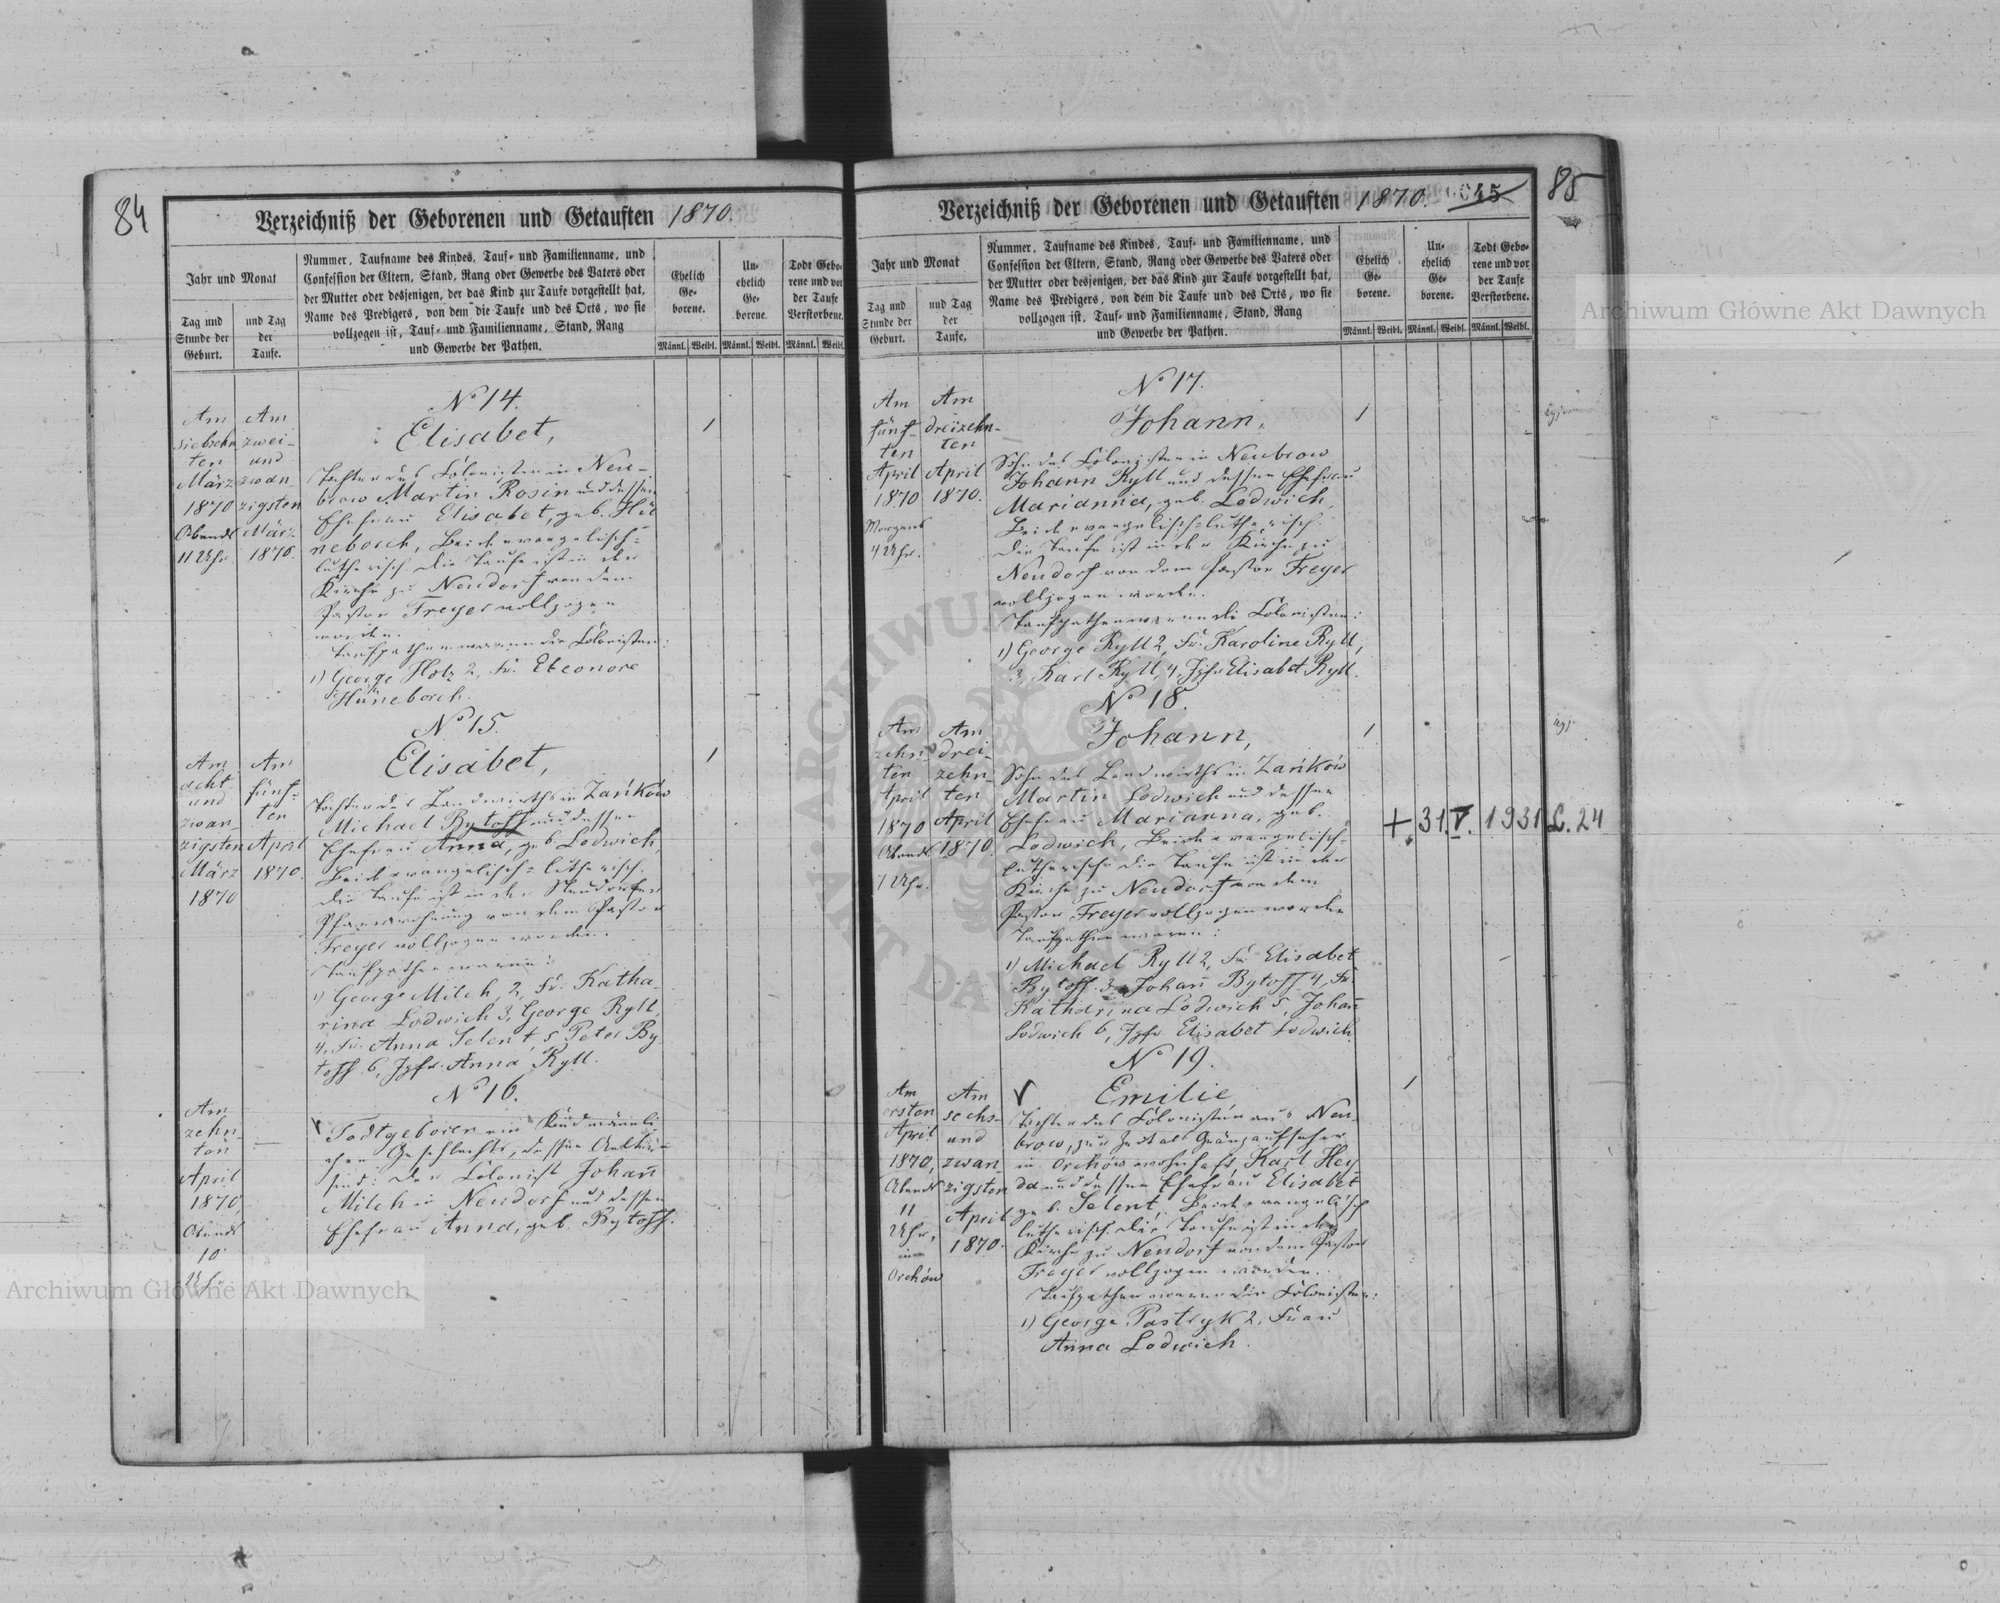 84
Verzeichniß der Geborenen und Getauften 1870.
Jahr und Monat
Tag und Stunde der Geburt.
und Tag der Taufe.
Nummer, Taufname des Kindes, Tauf- und Familienname, und
Confession der Eltern, Stand, Rang oder Gewerbe des Vaters oder
der Mutter oder desjenigen, der das Kind zur Taufe vorgestellt hat,
Name des Predigers, von dem die Taufe und des Orts, wo sie
vollzogen ist, Tauf- und Familienname, Stand, Rang
und Gewerbe der Pathen.
Ehelich Geborene.
Unehelich Geborene.
Todt Geborene und vor der Taufe Verstorbene.
Männl. Weibl. Männl. Weibl. Männl. Weibl.
Am
siebzehn
ten
März
1870
Abends
11 Uhr
Am
zwei-
und
zwan
zigsten
März
1870.
No 14.
Elisabet,
Tochter des Colonisten in Neu-
brow Martin Rosin und dessen
Ehefrau Elisabet, geb. Hü
neborch, Beide evangelisch-
lutherisch. Die Taufe ist in der
Kirche zu Neudorf von dem
Pastor Freyer vollzogen
worden.
Taufpathen waren die Colonisten:
1) George Holz 2, Fr. Eleonore
Hüneborch.
Am
acht
und
zwan
zigsten
März
1870
Am
fünf-
ten
April
1870.
No 15.
Elisabet,
Tochter des Landwirths in Zańków
Michael Bytoff und dessen
Ehefrau Anna, geb. Lodwich,
Beide evangelisch-lutherisch.
Die Taufe ist in der Neudorfer
Pfarrwohnung von dem Pastor
Freyer vollzogen worden.
Taufpathen waren:
1) George Milch, 2, Fr. Katha-
rina Lodwich 3, George Ryll,
4, Fr. Anna Selent, 5 Peter By
toff 6, Jgfr. Anna Ryll.
Am
zehn-
ten
April
1870,
Abends
10
Uhr
No 16.
Todtgeboren ein Kind männli
chen Geschlechts, dessen Aeltern
sind: Der Colonist Johann
Milch in Neudorf und dessen
Ehefrau Anna, geb. Bytoff.
85
45
Verzeichniß der Geborenen und Getauften 1870.
Jahr und Monat
Tag und Stunde der Geburt.
und Tag der Taufe.
Nummer, Taufname des Kindes, Tauf- und Familienname, und
Confession der Eltern, Stand, Rang oder Gewerbe des Vaters oder
der Mutter oder desjenigen, der das Kind zur Taufe vorgestellt hat,
Name des Predigers, von dem die Taufe und des Orts, wo sie
vollzogen ist, Tauf- und Familienname, Stand, Rang
und Gewerbe der Pathen.
Ehelich Geborene.
Unehelich Geborene.
Todt Geborene und vor der Taufe Verstorbene.
Männl. Weibl. Männl. Weibl. Männl. Weibl.
Am
fünf-
ten
April
1870
Morgens
4 Uhr.
Am
dreizehn-
ten
April
1870.
No 17.
Johann,
Sohn des Colonisten in Neubrow
Johann Ryll und dessen Ehefrau
Marianna, geb. Lodwich,
Beide evangelisch-lutherisch.
Die Taufe ist in der Kirche zu
Neudorf von dem Pastor Freyer
vollzogen worden.
Taufpathen waren die Colonisten:
1) George Ryll 2, Fr. Karoline Ryll,
3, Karl Ryll, 4, Jgfr. Elisabet Ryll.
Am
zehn-
ten
April
1870
Abends
7 Uhr.
Am
drei-
zehn-
ten
April
1870.
No 18.
Johann,
Sohn des Landwirths in Zańków
Martin Lodwich und dessen
Ehefrau Marianna, geb.
Lodwich, Beide evangelisch-
lutherisch. Die Taufe ist in der
Kirche zu Neudorf von dem
Pastor Freyer vollzogen worden
Taufpathen waren:
1) Michael Ryll 2, Fr. Elisabet
Bytoff 3, Johann Bytoff 4, Fr.
Katharina Lodwich 5, Johann
Lodwich 6, Jgfr. Elisabet Lodwich.
+ 31. V. 1931 L. 24
Am
ersten
April
1870,
Abends
11
Uhr,
in
Orchów
Am
sechs-
und
zwan-
zigsten
April
1870.
No 19.
Emilie,
Tochter des Colonisten aus Neu-
brow, zur Zeit als Gränzaufseher
in Orchów wohnhaft, Karl Hey-
da und dessen Ehefrau Elisabet
geb. Selent, Beide evangelisch
lutherisch. Die Taufe ist in der
Kirche zu Neudorf von dem Pastor
Freyer vollzogen worden.
Taufpathen waren die Colonisten:
1) George Pastryk 2, Frau
Anna Lodwich.
Archiwum Główne Akt Dawnych
Archiwum Główne Akt Dawnych